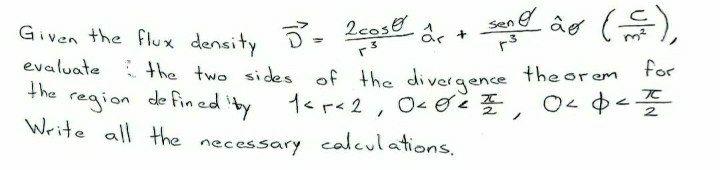 Given the flux density D⃗ = 2cosθ/r³ âr + senθ/r³ âθ (C/m²),
evaluate : the two sides of the divergence theorem for
the region defined by 1<r<2, 0<θ<π/2, 0<ϕ<π/2
Write all the necessary calculations.